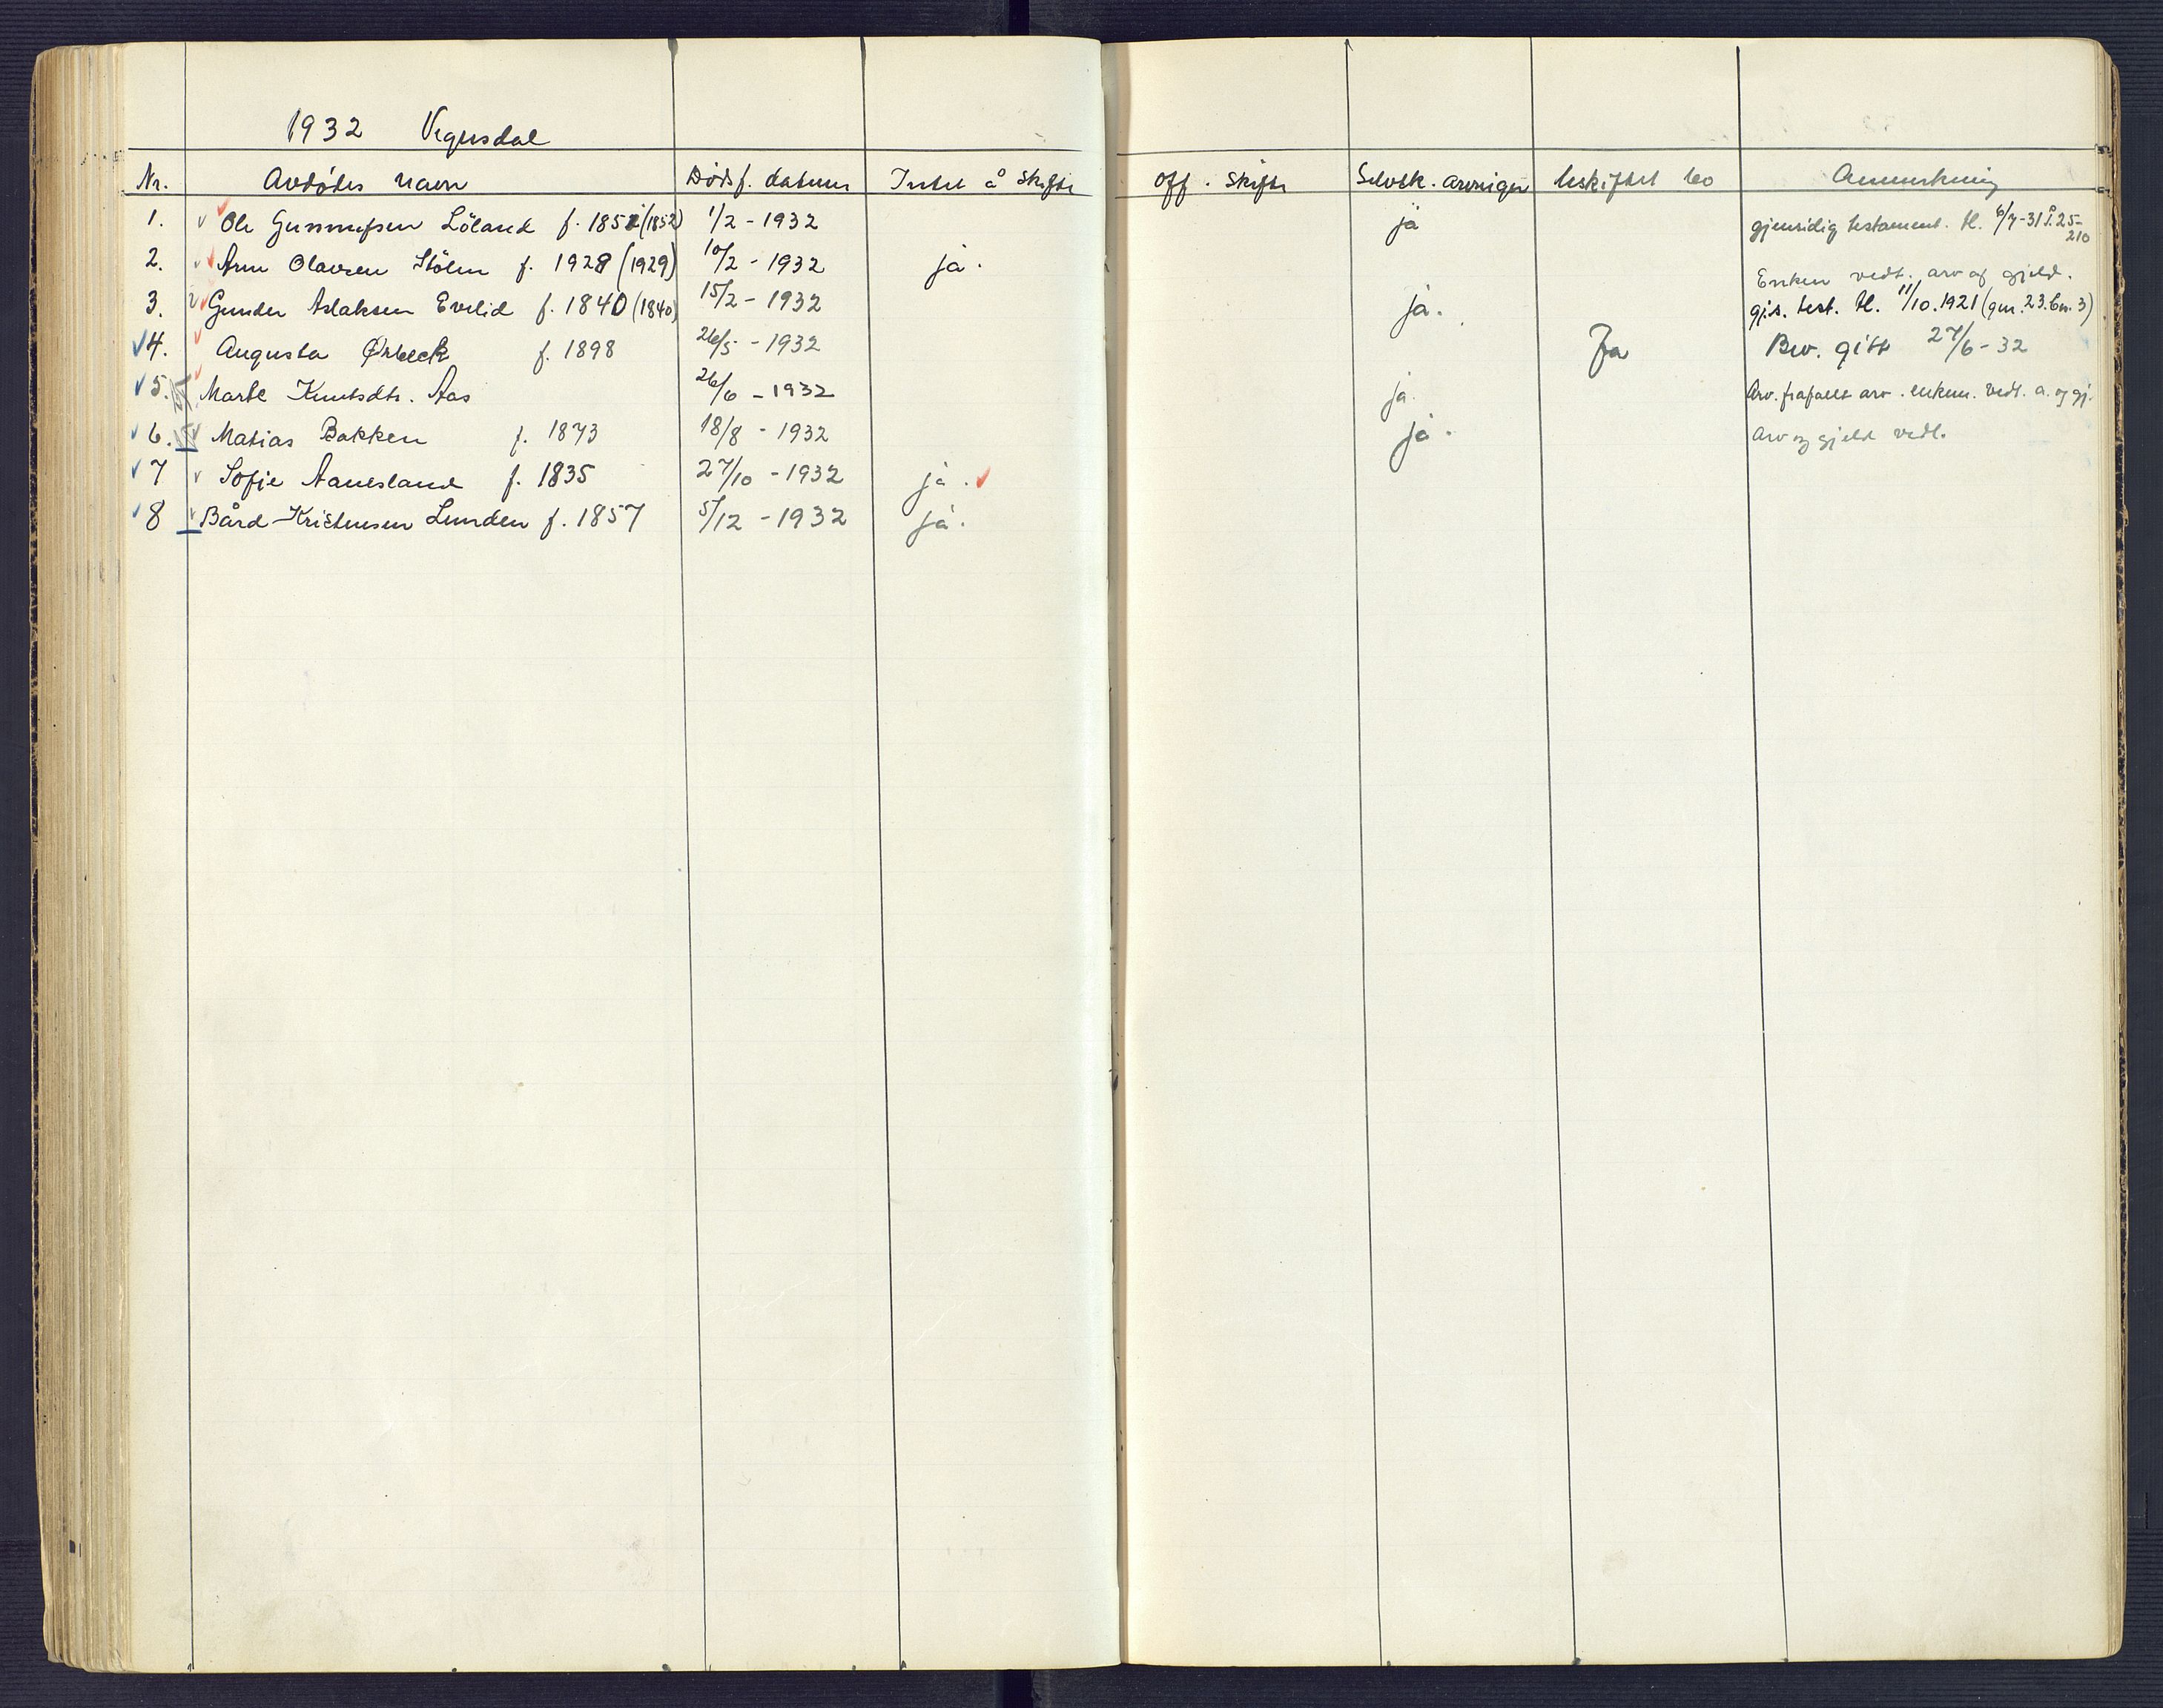 1932 Vegusdal
Nr. Avdødes navn Dødsf. datum Intet å skifte off. skifte Selvsk. arvinger Uskiftet bo Anmerkning
1. Ole Gunnufsen Löland f. 1852 (1852) 1/2 - 1932 ja gjensidig testament. tl. 6/7-31 P. 25-210
2. Arne Olavsen Stölen f. 1928 (1929) 10/2 - 1932 ja.
Enken vedt. arv og gjeld.
3. Gunder Aslaksen Evelid f. 1840 (1840) 15/2 - 1932 ja. gjs. test. tl. 11/10.1921 (gnr. 23. bn. 3)
4. Augusta Ørbeck f. 1898 26/5 - 1932 Ja Bev. gitt 27/6 - 32
5. Marte Knutsdtr. Aas 26/6 - 1932 ja. Arv. frafallt arv. enkem. vedt. a. og gj.
6. Matias Bakken f. 1873 18/8 - 1932 ja. Arv og gjeld vedt.
7 Sofie Aanesland f. 1835 27/10 - 1932 ja.
8 Bård Kristensen Lunden f. 1857 5/12 - 1932 ja.